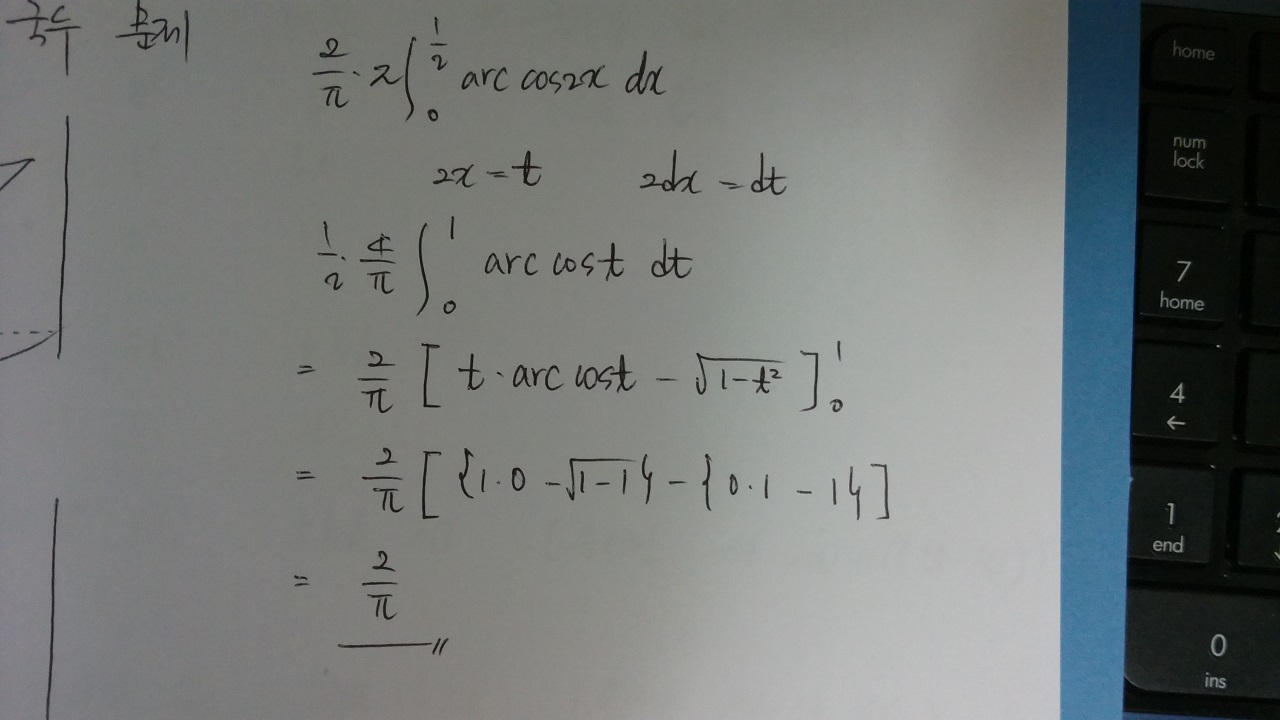 국수 문제
2/π · 2∫₀^(1/2) arc cos2x dx
2x = t 2dx = dt
1/2 · 4/π ∫₀¹ arc cost dt
= 2/π [ t · arc cost − √(1−t²) ]₀¹
= 2/π [ {1·0 − √(1−1)} − {0·1 − 1} ]
= 2/π
home
num
lock
7
home
4
←
1
end
0
ins